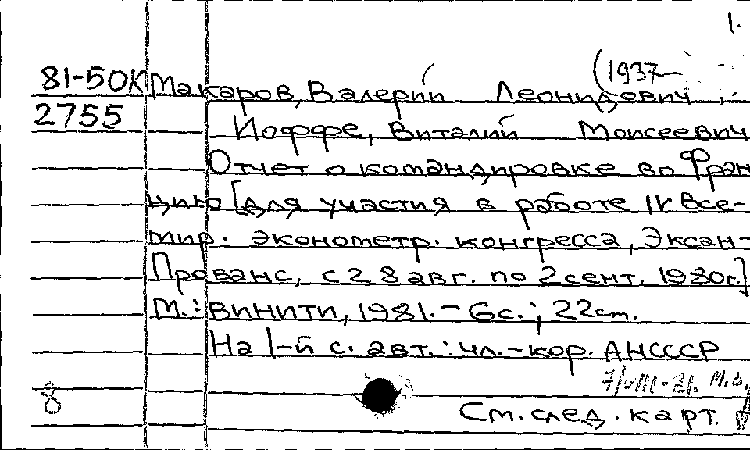 1.
(1937-
81-50К Макаров, Валерий Леонидович,
2755 Иоффе, Виталий Моисеевич
Отчет о командировке во Фран-
цию [для участия в работе IV Все-
мир. эконометр. конгресса, Экс-ан-
Прованс, с 28 авг. по 2 сент. 1980г.]
М.: ВИНИТИ, 1981. - 6с.; 22см.
На 1-й с. авт.: чл.-кор. АН СССР
8 См. след. карт.